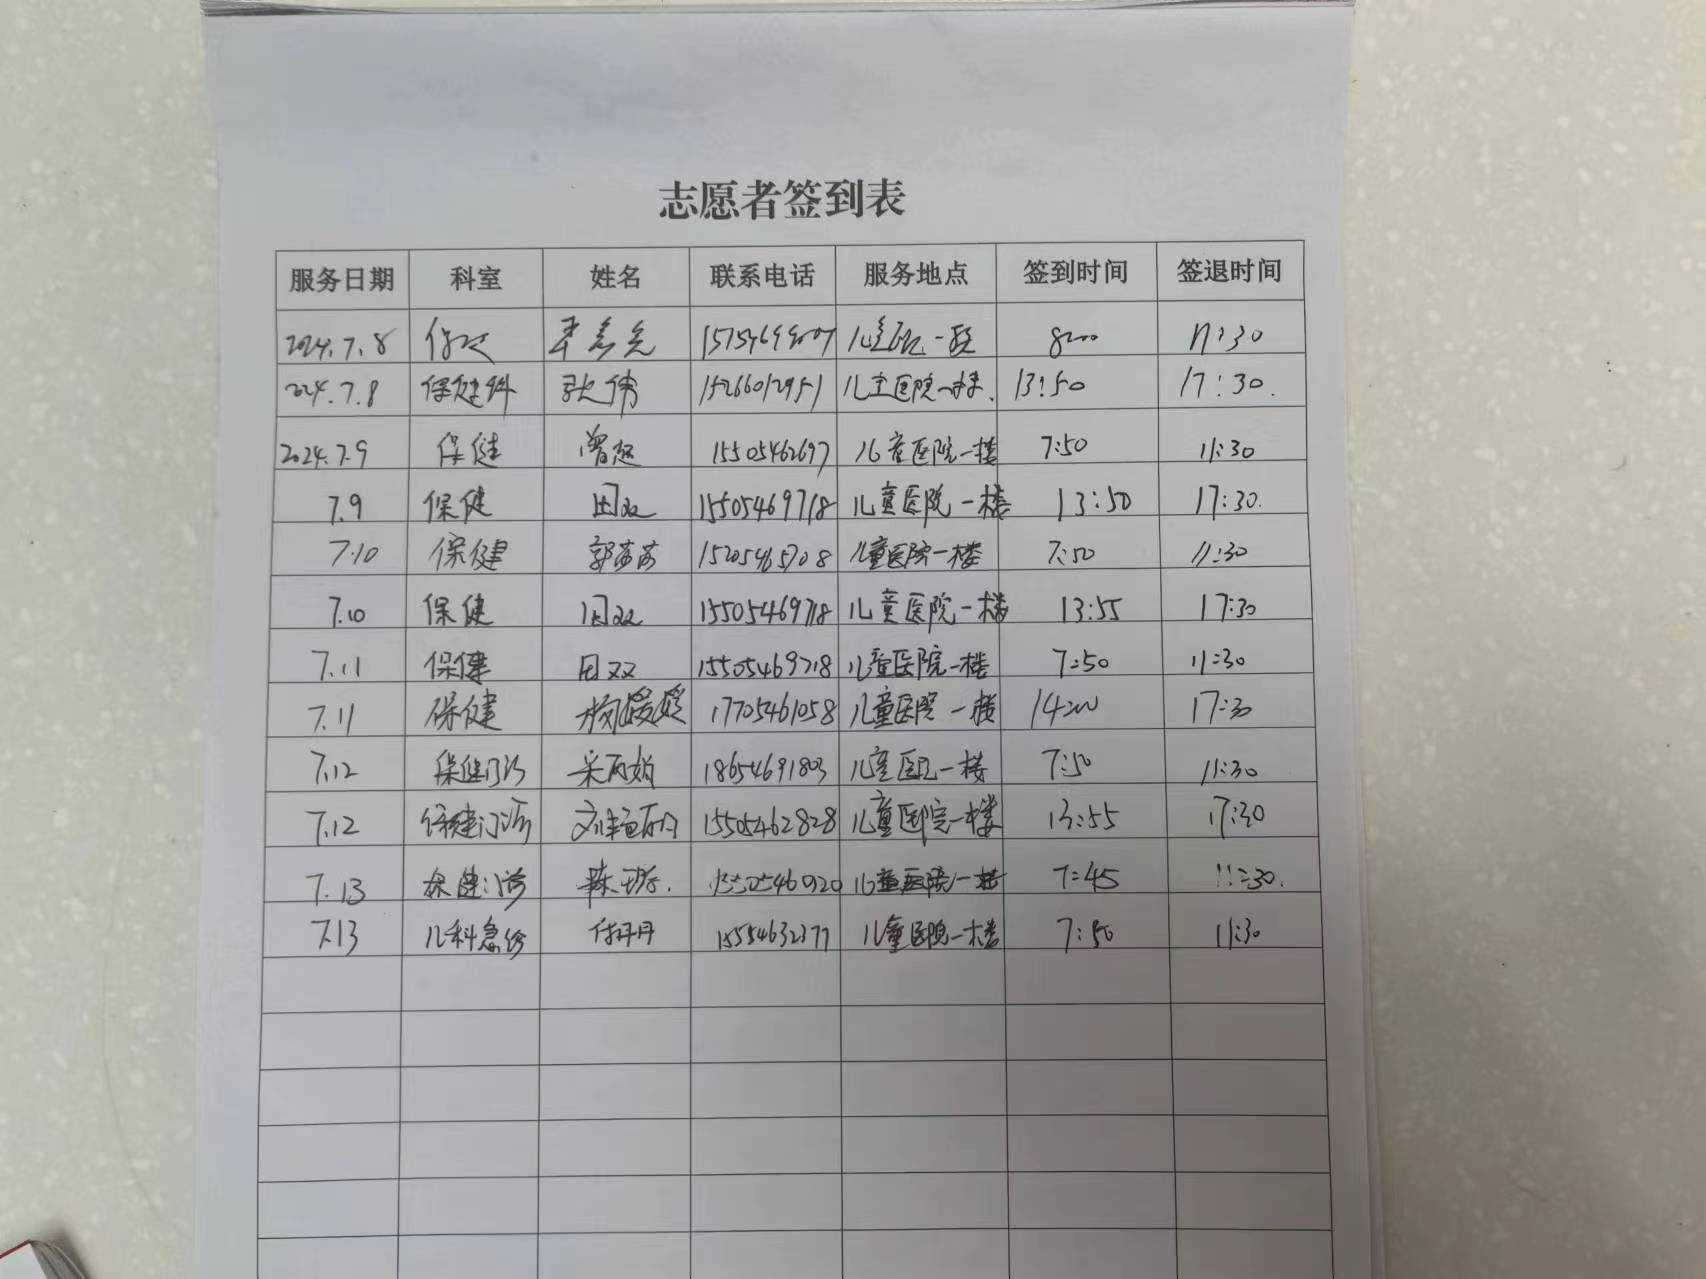 志愿者签到表
服务日期 科室 姓名 联系电话 服务地点 签到时间 签退时间
2024.7.8 8:00 11:30
2024.7.8 保健科 张伟 15266012951 儿童医院一楼. 13:50 17:30.
2024.7.9 保健 曾超 15505462697 儿童医院一楼 7:50 11:30
7.9 保健 田双 15505469718 儿童医院一楼 13:50 17:30.
7.10 保健 郭莎莎 15205465708 儿童医院一楼 7:50 11:30
7.10 保健 田双 15505469718 儿童医院一楼 13:55 17:30
7.11 保健 田双 15505469718 儿童医院一楼 7:50 11:30
7.11 保健 杨媛媛 17705461058 儿童医院一楼 14:00 17:30
7.12 保健门诊 18654691803 儿童医院一楼 7:50 11:30
7.12 保健门诊 15505462828 儿童医院一楼 13:55 17:30
7.13 保健门诊 儿童医院一楼 7:45 11:30.
7.13 儿科急诊 付丹丹 15554632377 儿童医院一楼 7:50 11:30